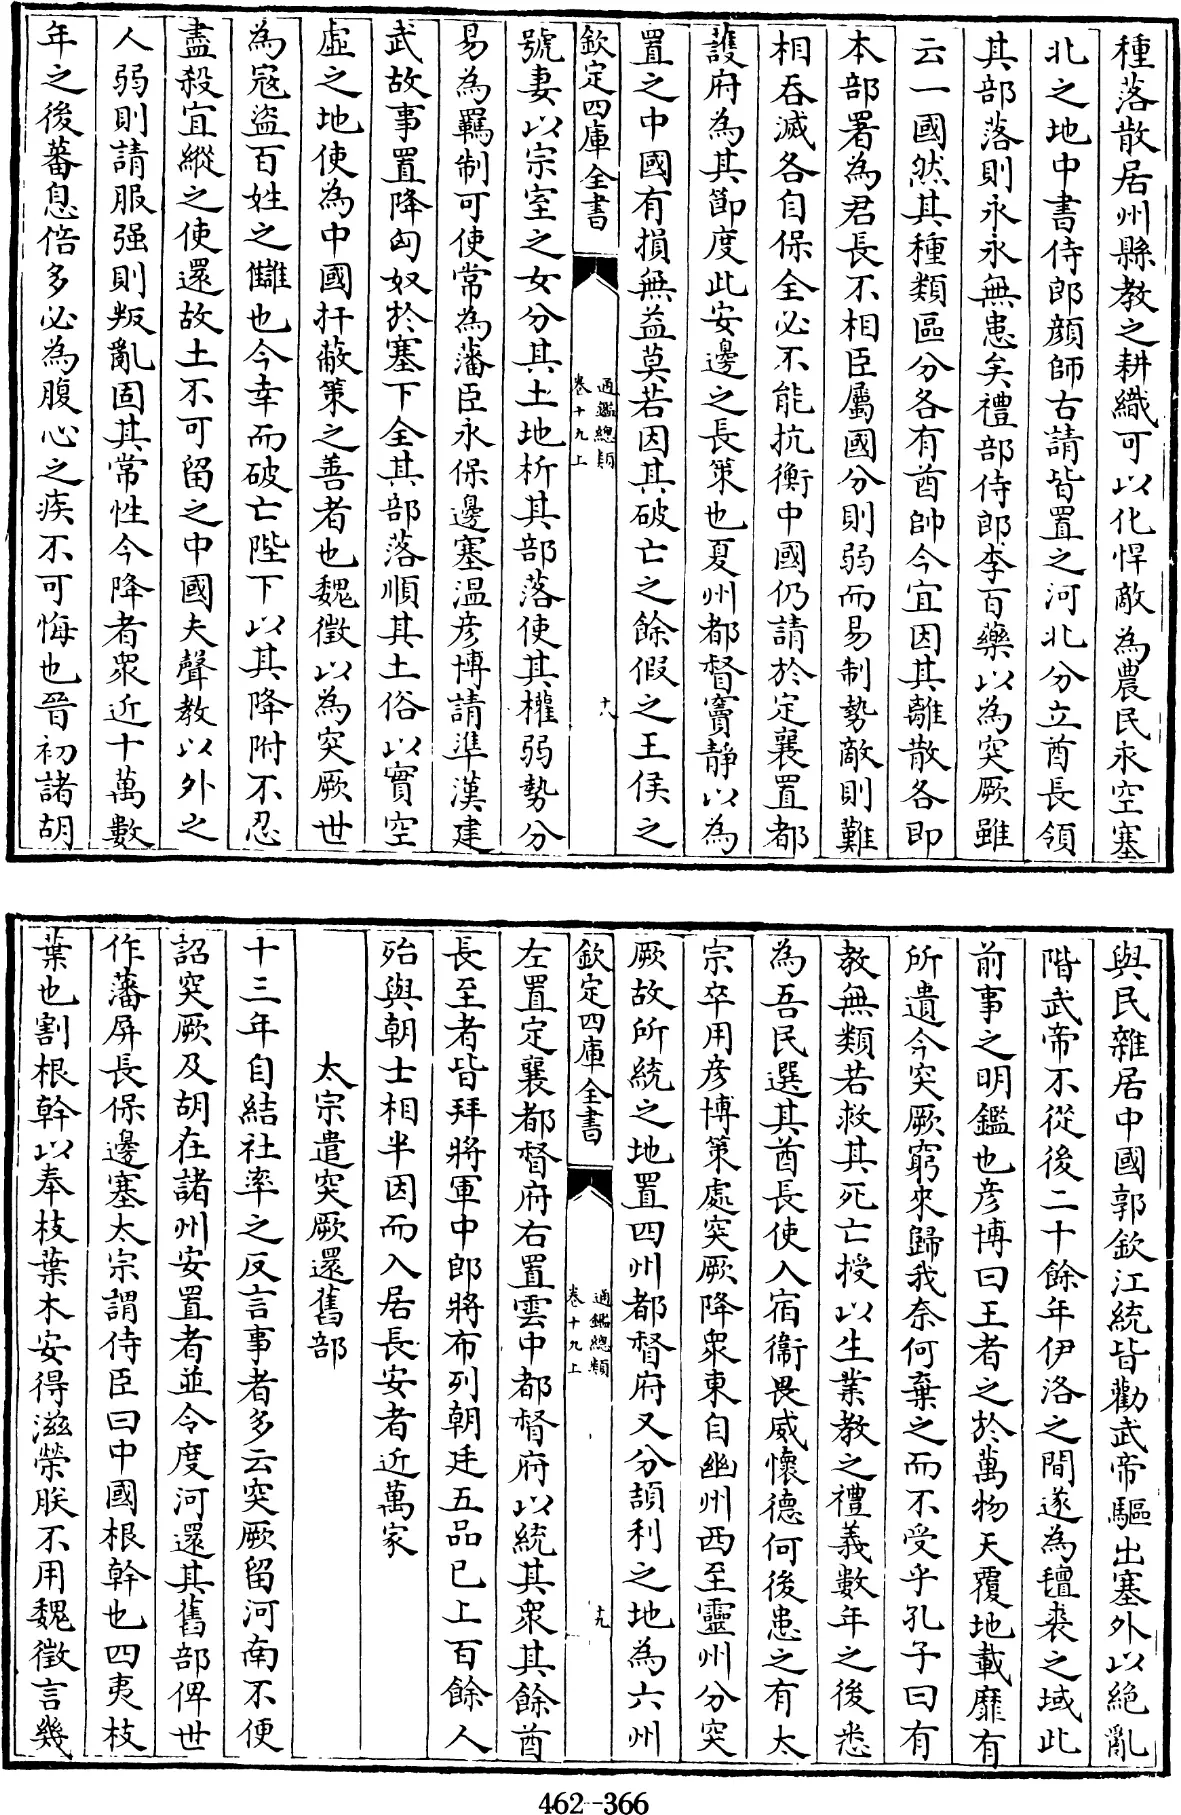 種落散居州縣教之耕織可以化悍敵為農民永空塞
北之地中書侍郎顔師古請皆置之河北分立酋長領
其部落則永永無患矣禮部侍郎李百藥以為突厥雖
云一國然其種類區分各有酋帥今宜因其離散各即
本部署為君長不相臣屬國分則弱而易制勢敵則難
相吞滅各自保全必不能抗衡中國仍請於定襄置都
護府為其節度此安邊之長策也夏州都督竇静以為
置之中國有損無益莫若因其破亡之餘假之王侯之
欽定四庫全書
通鑑總類
卷十九上
十八
號妻以宗室之女分其土地析其部落使其權弱勢分
易為羈制可使常為藩臣永保邊塞温彦博請準漢建
武故事置降匈奴於塞下全其部落順其土俗以實空
虛之地使為中國扞蔽策之善者也魏徵以為突厥世
為寇盜百姓之讎也今幸而破亡陛下以其降附不忍
盡殺宜縱之使還故土不可留之中國夫聲教以外之
人弱則請服强則叛亂固其常性今降者衆近十萬數
年之後蕃息倍多必為腹心之疾不可悔也晉初諸胡
與民雜居中國郭欽江統皆勸武帝驅出塞外以絶亂
階武帝不從後二十餘年伊洛之間遂為氊裘之域此
前事之明鑑也彦博曰王者之於萬物天覆地載靡有
所遺今突厥窮來歸我奈何棄之而不受乎孔子曰有
教無類若救其死亡授以生業教之禮義數年之後悉
為吾民選其酋長使入宿衞畏威懷德何後患之有太
宗卒用彦博策處突厥降衆東自幽州西至靈州分突
厥故所統之地置四州都督府又分頡利之地為六州
欽定四庫全書
通鑑總類
卷十九上
十九
左置定襄都督府右置雲中都督府以統其衆其餘酋
長至者皆拜將軍中郎將布列朝廷五品已上百餘人
殆與朝士相半因而入居長安者近萬家
太宗遣突厥還舊部
十三年自結社率之反言事者多云突厥留河南不便
詔突厥及胡在諸州安置者並令度河還其舊部俾世
作藩屏長保邊塞太宗謂侍臣曰中國根幹也四夷枝
葉也割根幹以奉枝葉木安得滋榮朕不用魏徵言幾
462--366